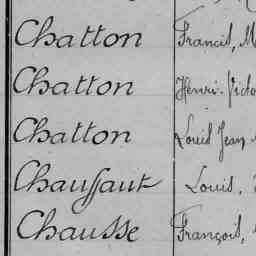 Chatton Francis, M
Chatton Henri-Victo
Chatton Louis Jean
Chaussaut Louis,
Chausse François,